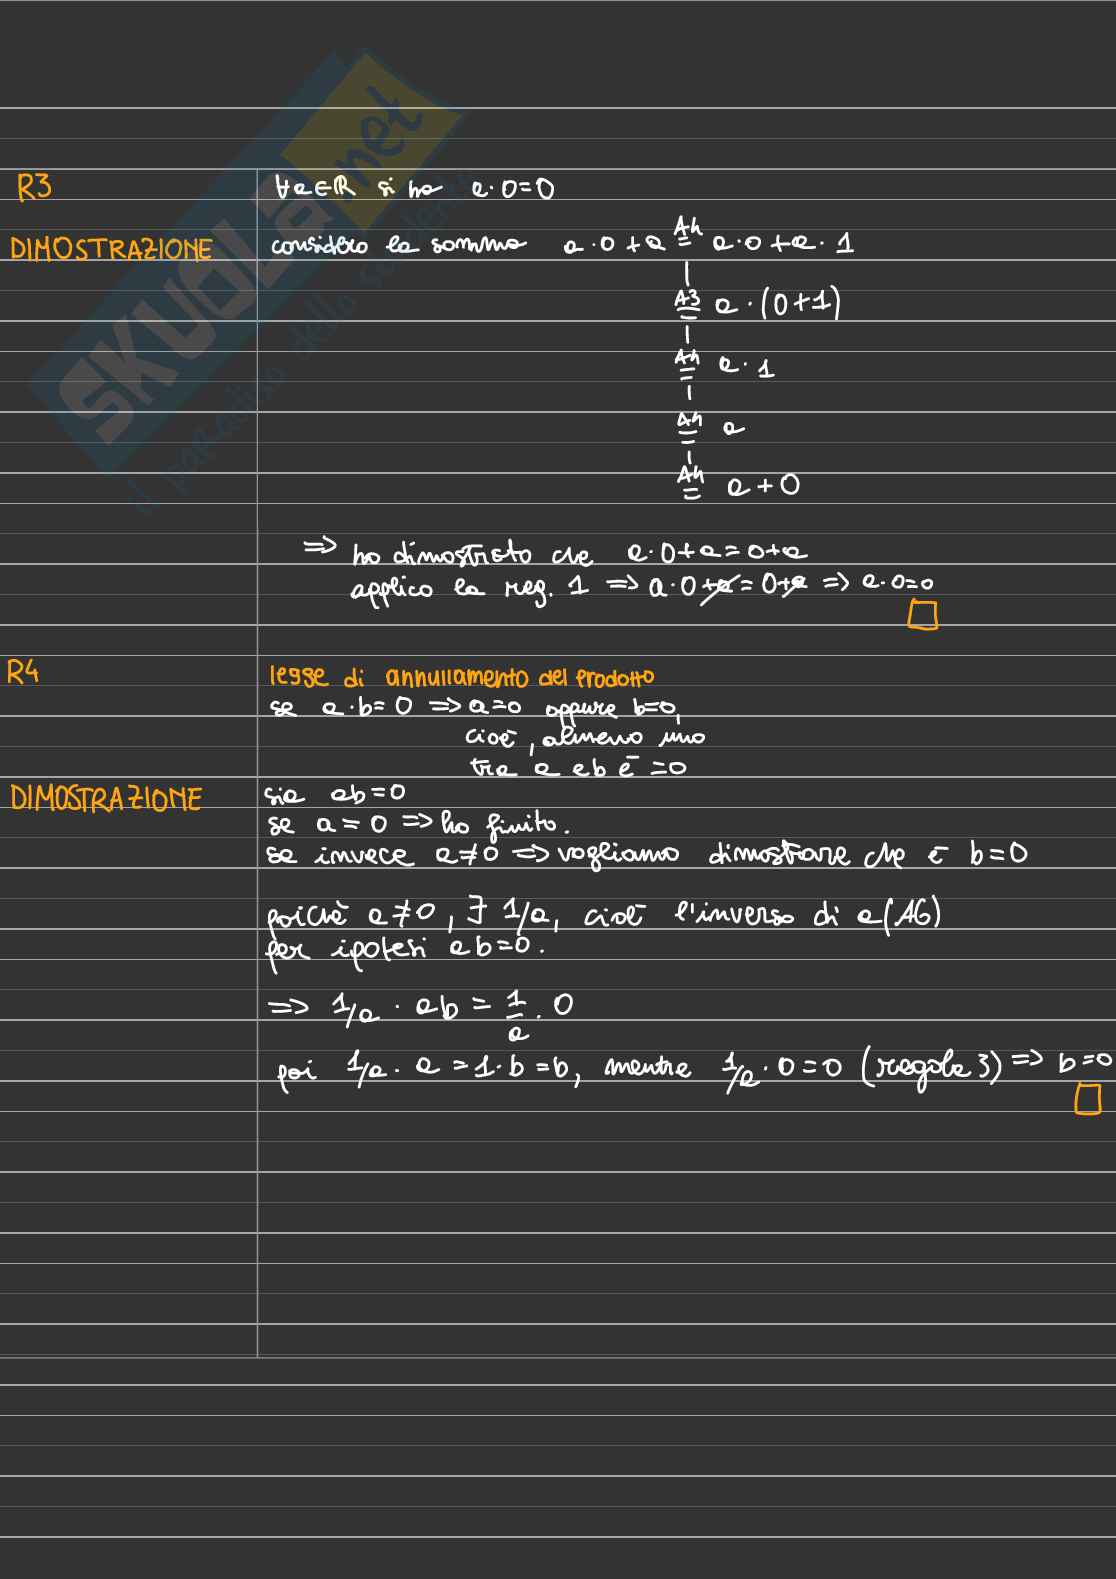 R3
∀a∈ℝ si ha a·0=0
DIMOSTRAZIONE
considero la somma a·0+a A4= a·0+a·1
A3= a·(0+1)
A4= a·1
A4= a
A4= a+0
⇒ ho dimostrato che a·0+a=0+a
applico la reg. 1 ⇒ a·0+a=0+a ⇒ a·0=0
R4
legge di annullamento del prodotto
se a·b=0 ⇒ a=0 oppure b=0,
cioè, almeno uno
tra a e b è =0
DIMOSTRAZIONE
sia ab=0
se a=0 ⇒ ho finito.
se invece a≠0 ⇒ vogliamo dimostrare che è b=0
poichè a≠0, ∃ 1/a, cioè l'inverso di a (A6)
per ipotesi ab=0.
⇒ 1/a · ab = 1/a · 0
poi 1/a · a = 1·b = b, mentre 1/a · 0=0 (regola 3) ⇒ b=0
SKUOLA.net
il paradiso dello studente